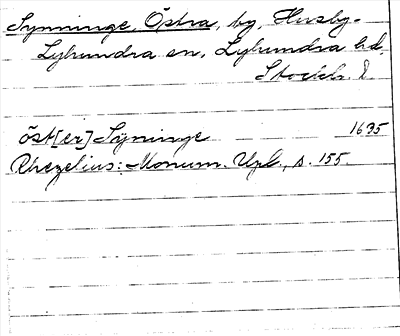 Synninge, Östra, by, Husby-
Lyhundra sn, Lyhundra hd,
Stockh. l.
öst[er] Syninge 1635
Rhezelius: Monum. Upl., s. 155